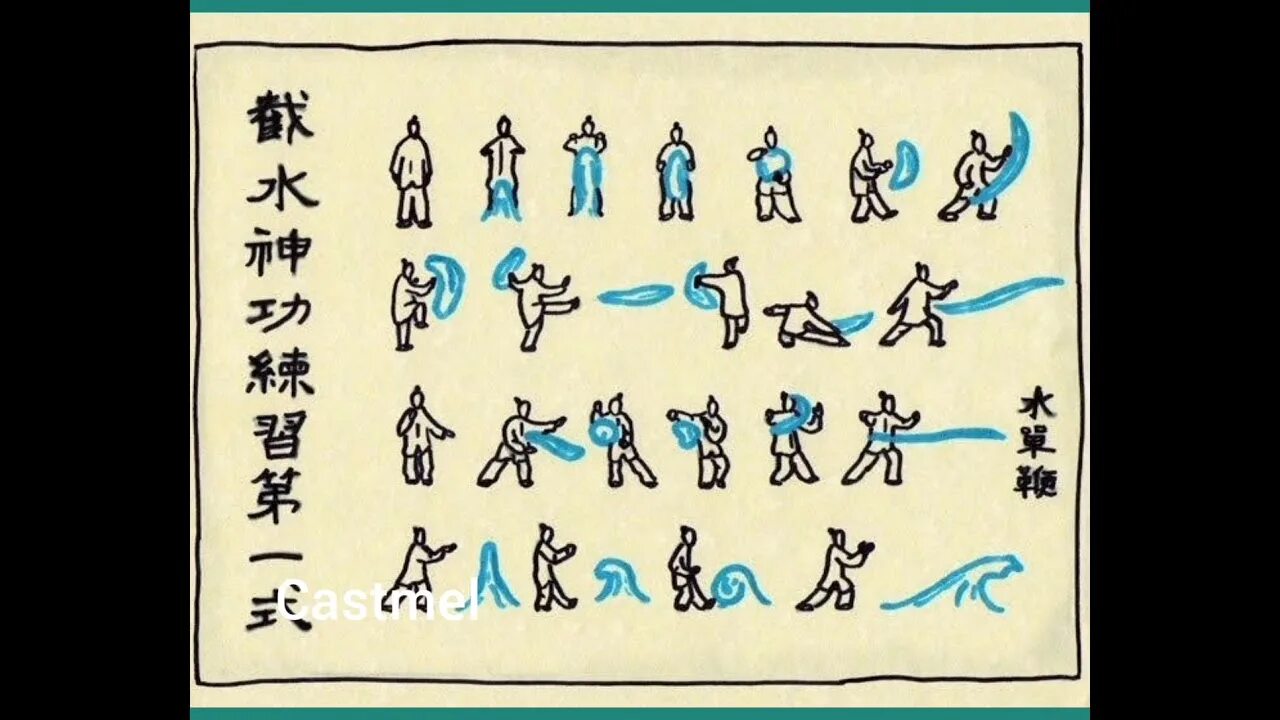 截水神功練習第一式
水單鞭
Castmel